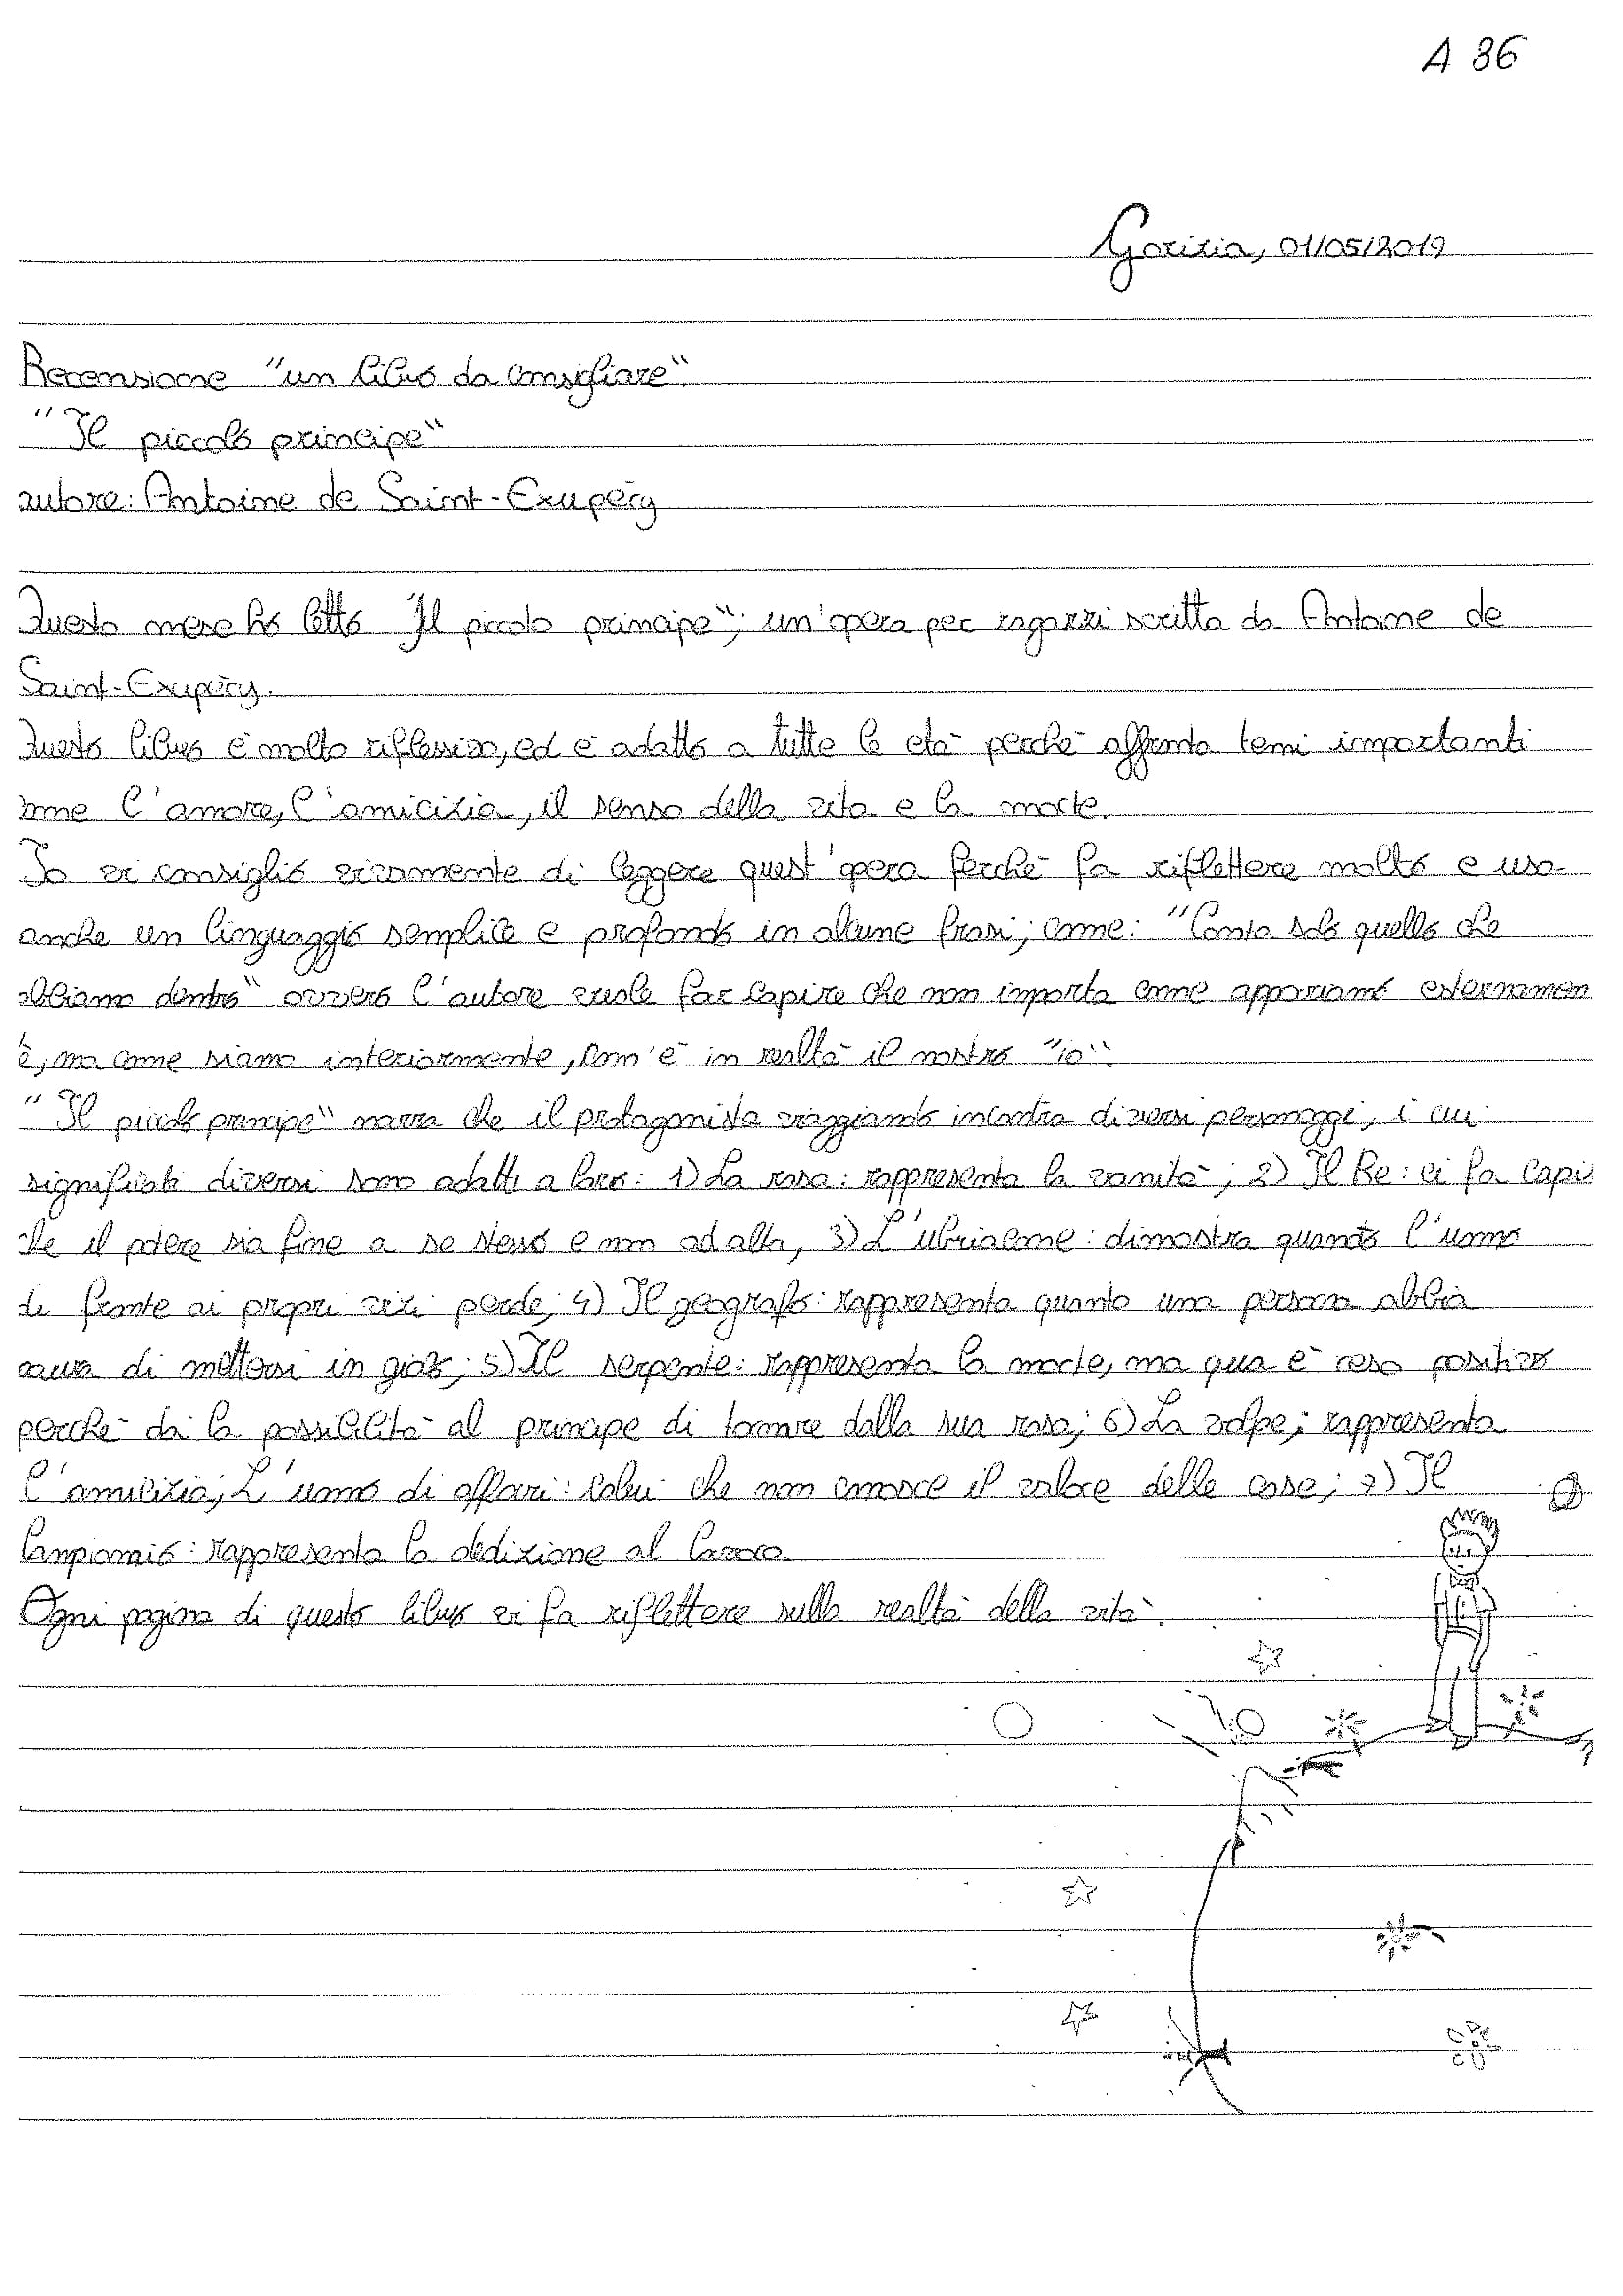 A 36
Gorizia, 01/05/2019
Recensione "un libro da consigliare".
"Il piccolo principe"
autore: Antoine de Saint-Exupéry
Questo mese ho letto "Il piccolo principe"; un'opera per ragazzi scritta da Antoine de
Saint-Exupéry.
Questo libro è molto riflessivo, ed è adatto a tutte le età perché affronta temi importanti
ome l'amore, l'amicizia, il senso della vita e la morte.
Io vi consiglio vivamente di leggere quest'opera perché fa riflettere molto e usa
anche un linguaggio semplice e profondo in alcune frasi; come: "Conta solo quello che
abbiamo dentro" ovvero l'autore vuole far capire che non importa come appariamo esternamen
e, ma come siamo interiormente, com'è in realtà il nostro "io".
"Il piccolo principe" narra che il protagonista viaggiando incontra diversi personaggi, i cui
significati diversi sono adatti a loro: 1) La rosa: rappresenta la vanità; 2) Il Re: ci fa capi
che il potere sia fine a se stesso e non ad altro, 3) L'ubriacone: dimostra quando l'uomo
di fronte ai propri vizi perde; 4) Il geografo: rappresenta quanto una persona abbia
aura di mettersi in gioco; 5) Il serpente: rappresenta la morte, ma qua è reso positivo
perché dà la possibilità al principe di tornare dalla sua rosa; 6) La volpe; rappresenta
l'amicizia; L'uomo di affari: colui che non conosce il valore delle cose; 7) Il
Lampionaio: rappresenta la dedizione al lavoro.
Ogni pagina di questo libro vi fa riflettere sulla realtà della vità.